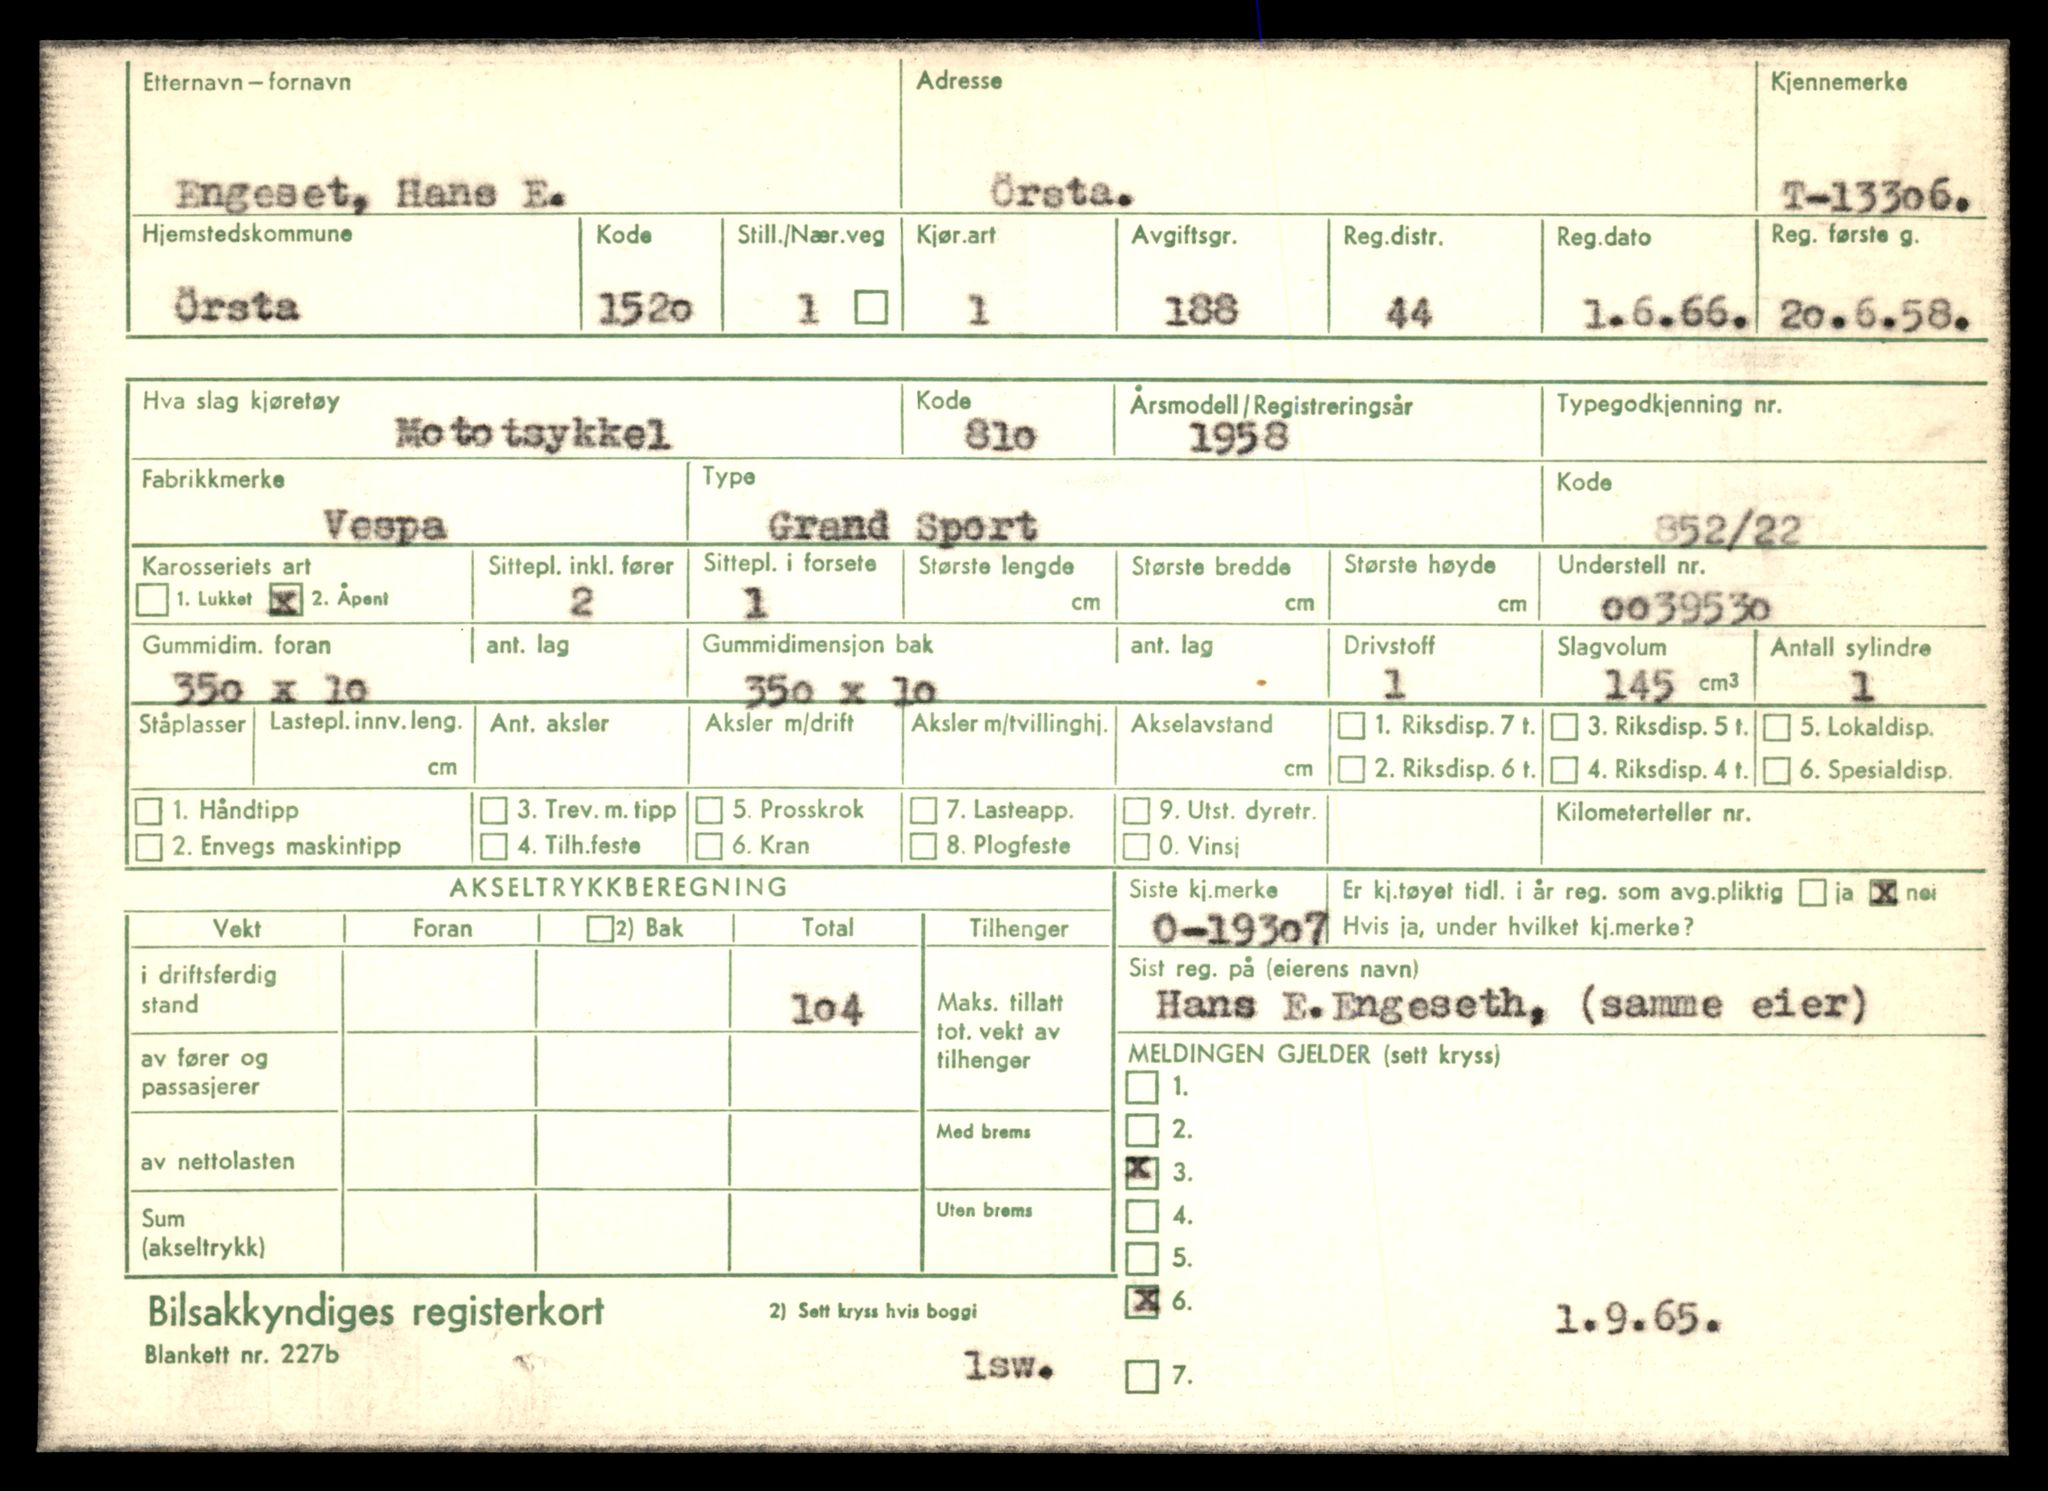 Etternavn – fornavn Adresse Kjennemerke
Engeset, Hans E. Örsta. T-13306.
Hjemstedskommune Kode Still./Nær.veg Kjør.art Avgiftsgr. Reg.distr. Reg.dato Reg. første g.
Örsta 1520 1 1 188 44 1.6.66. 20.6.58.
Hva slag kjøretøy Kode Årsmodell/Registreringsår Typegodkjenning nr.
Mototsykkel 810 1958
Fabrikkmerke Type Kode
Vespa Grand Sport 852/22
Karosseriets art Sittepl. inkl. fører Sittepl. i forsete Største lengde Største bredde Største høyde Understell nr.
1. Lukket x 2. Åpent 2 1 cm cm cm 0039530
Gummidim. foran ant. lag Gummidimensjon bak ant. lag Drivstoff Slagvolum Antall sylindre
350 x 10 350 x 10 1 145 cm3 1
Ståplasser Lastepl. innv. leng. Ant. aksler Aksler m/drift Aksler m/tvillinghj. Akselavstand 1. Riksdisp. 7 t. 3. Riksdisp. 5 t. 5. Lokaldisp.
cm cm 2. Riksdisp. 6 t. 4. Riksdisp. 4 t. 6. Spesialdisp.
1. Håndtipp 3. Trev. m. tipp 5. Prosskrok 7. Lasteapp. 9. Utst. dyretr. Kilometerteller nr.
2. Envegs maskintipp 4. Tilh.feste 6. Kran 8. Plogfeste 0. Vinsj
AKSELTRYKKBEREGNING Siste kj.merke Er kj.tøyet tidl. i år reg. som avg.pliktig ja x nei
Vekt Foran 2) Bak Total Tilhenger O-19307 Hvis ja, under hvilket kj.merke?
i driftsferdig Sist reg. på (eierens navn)
stand 104 Maks. tillatt Hans E.Engeseth, (samme eier)
tot. vekt av
av fører og tilhenger MELDINGEN GJELDER (sett kryss)
passasjerer 1.
Med brems 2.
av nettolasten x 3.
Sum Uten brems 4.
(akseltrykk) 5.
Bilsakkyndiges registerkort 2) Sett kryss hvis boggi x 6. 1.9.65.
Blankett nr. 227b lsw. 7.